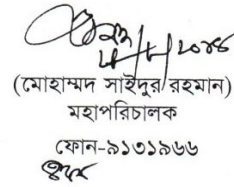 (মোহাম্মদ সাইদুর রহমান)
মহাপরিচালক
ফোন-৯১৩১৯৬৬